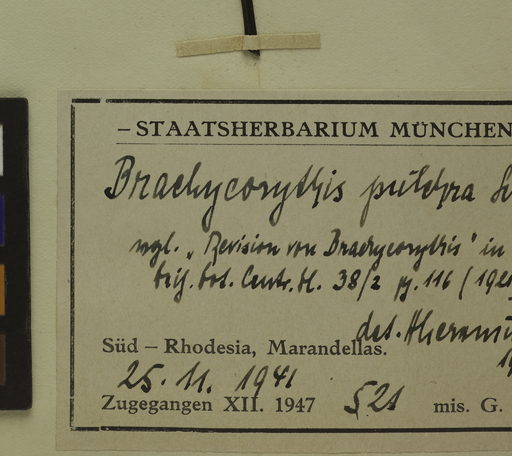 – STAATSHERBARIUM MÜNCHEN
Brachycorythis pulchra
vgl. „Revision von Brachycorythis" in
bot. Centr. bl. 38/2 pg. 116 (192
det.
Süd – Rhodesia, Marandellas.
25. 11. 1941
Zugegangen XII. 1947 521 mis. G.